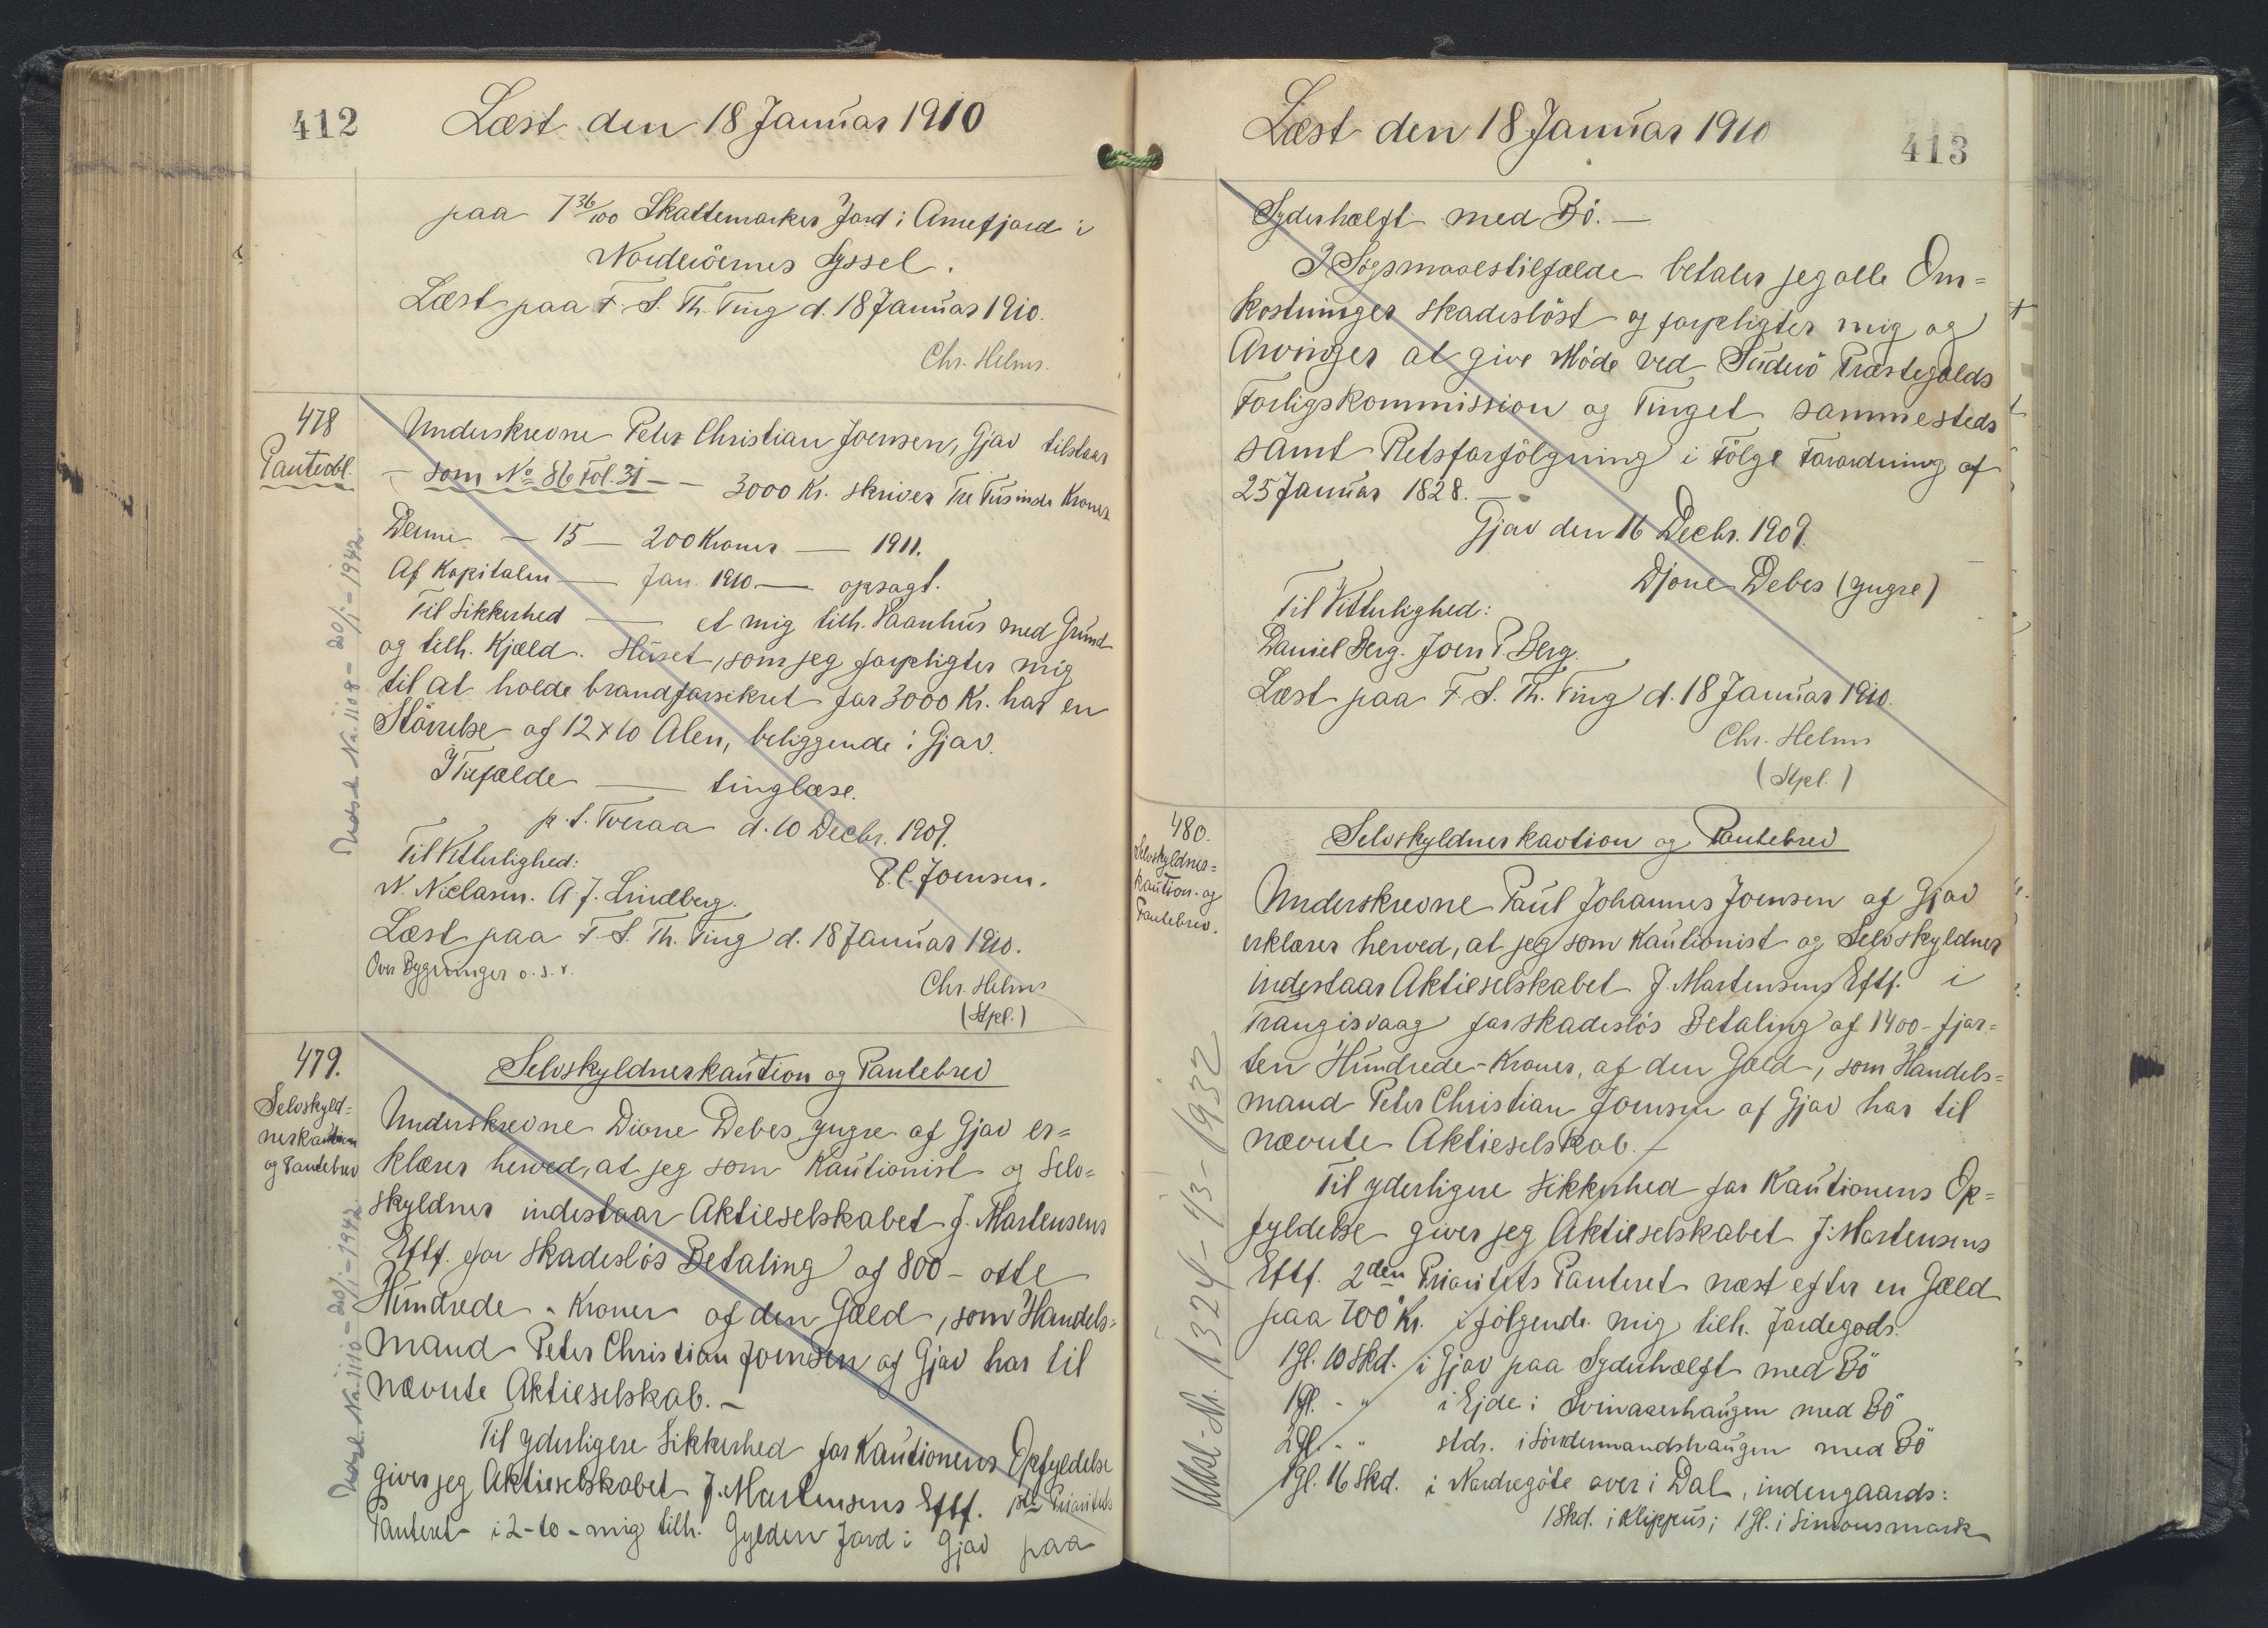 412
Læst den 18 Januar 1910
paa 7 36/100 Skattemarker Jord i Arnefjord i
Norderöernes Syssel.
Læst paa F. S. Th. Ting d. 18 Januar 1910.
Chr. Helms.
478
Panteobl.
Underskrevne Peter Christian Joensen, Gjov tilstaar
- som No 86 Fol. 31 - - 3000 Kr. skriver Tre Tusinde Kroner
Denne - 15 - 200 Kroner - 1911.
Af Kapitalen - Jan. 1910 - opsagt.
Til Sikkerhed - et mig tilh. Vaanhus med Grund
og tilh. Kjæld. Huset, som jeg forpligter mig
til at holde brandforsikret for 3000 Kr. har en
Störrelse af 12 x 10 Alen, beliggende i Gjov.
I Tilfælde - tinglæse.
p. t. Tveraa d. 10 Decbr. 1909.
Til Vitterlighed:
P. C. Joensen.
N. Niclasen. A. J. Lindberg.
Læst paa F. S. Th. Ting d. 18 Januar 1910.
Over Bygninger o. s. v.
Chr. Helms
(Stpl.)
Udsl. Nr. 1108 - 20/1 - 1942.
479.
Selvskyld=
nerkaution
og Pantebrev
Selvskyldnerkaution og Pantebrev
Underskrevne Dione Debes yngre af Gjov er=
klærer herved, at jeg som Kautionist og Selv=
skyldner indestaar Aktieselskabet J. Mortensens
Eftf. for skadeslös Betaling af 800 - otte
Hundrede - Kroner af den Gæld, som Handels=
mand Peter Christian Joensen af Gjov har til
nævnte Aktieselskab. -
Til yderligere Sikkerhed for Kautionens Opfyldelse
giver jeg Aktieselskabet J. Mortensens Eftf. 1ste Prioritets
Panteret i 2 - to - mig tilh. Gylden Jord i Gjov paa
Udsl. Nr. 1110 - 20/1 - 1942.
Læst den 18 Januar 1910
413
Syderhælft med Bö. -
I Sögsmaalstilfælde betaler jeg alle Om=
kostninger skadeslöst og forpligter mig og
Arvinger at give Möde ved Suderö Præstegjælds
Forligskommission og Tinget sammesteds
samt Retsforfölgning i Fölge Forordning af
25 Januar 1828. -
Gjov den 16 Decbr. 1909.
Djone Debes (yngre)
Til Vitterlighed:
Daniel Berg. Joen P. Berg.
Læst paa F. S. Th. Ting d. 18 Januar 1910.
Chr. Helms
(Stpl.)
480.
Selvskyldner=
kaution- og
Pantebrev.
Selvskyldnerkaution og Pantebrev
Underskrevne Poul Johannes Joensen af Gjov
erklærer herved, at jeg som Kautionist og Selvskyldner
indestaar Aktieselskabet J. Mortensens Eftf. i
Trangisvaag for skadeslös Betaling af 1400 - fjor=
ten Hundrede - Kroner, af den Gæld, som Handels=
mand Peter Christian Joensen af Gjov har til
nævnte Aktieselskab. -
Til yderligere Sikkerhed for Kautionens Op=
fyldelse giver jeg Aktieselskabet J. Mortensens
Eftf. 2den Prioritets Panteret næst efter en Gæld
paa 700 Kr. i fölgende mig tilh. Jordegods.
1 Gl. 10 Skd. i Gjov paa Syderhælft med Bö
1 Gl. - " i Ejde i Svinaserhaugen med Bö
2 Gl. - " stds. i Söndermandshaugen med Bö
1 Gl. 16 Skd. i Nordregöte over i Dal, indengaards:
1 Skd. i Klippus; 1 Gl. i Simonsmark
Udsl. Nr. 1324 - 1/3 - 1932